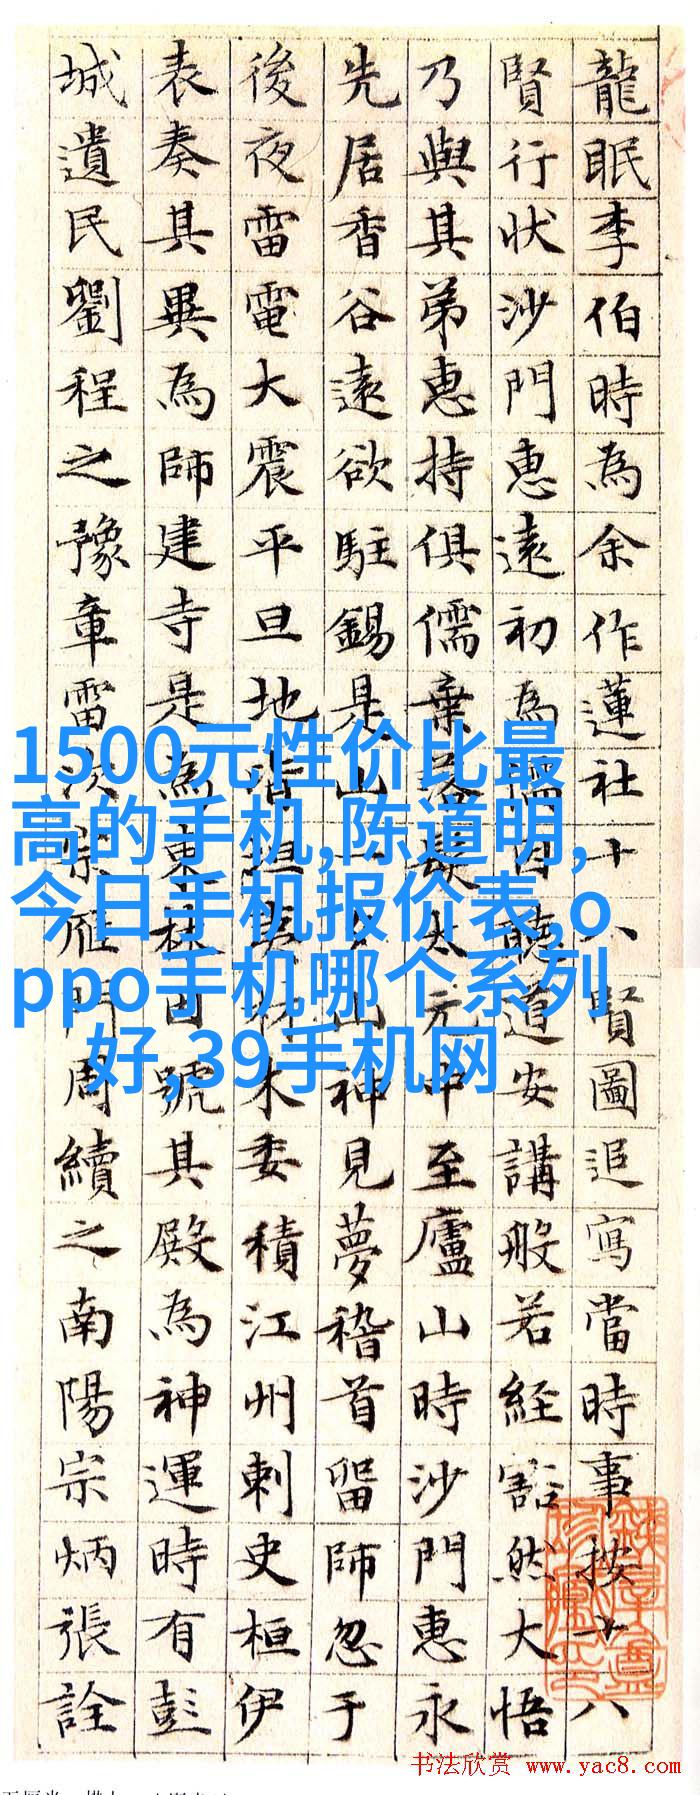 龍眠李伯時為余作蓮社十八賢圖追寫當時事按十八
賢行狀沙門惠遠初為儒因聽道安講般若経豁然大悟
乃與其弟惠持俱儒棄髮太元中至廬山時沙門惠永
先居香谷遠欲駐錫是山一夕山神見夢稽首留師忽于
後夜雷電大震平旦地皆坦夷材木委積江州刺史桓伊
表奏其異為師建寺是為東林目號其殿為神運時有彭
城遺民劉程之豫章雷次宗雁門周續之南陽宗炳張詮
1500元性价比最
高的手机,陈道明,
今日手机报价表,o
ppo手机哪个系列
好,39手机网
书法欣赏 www.yac8.com